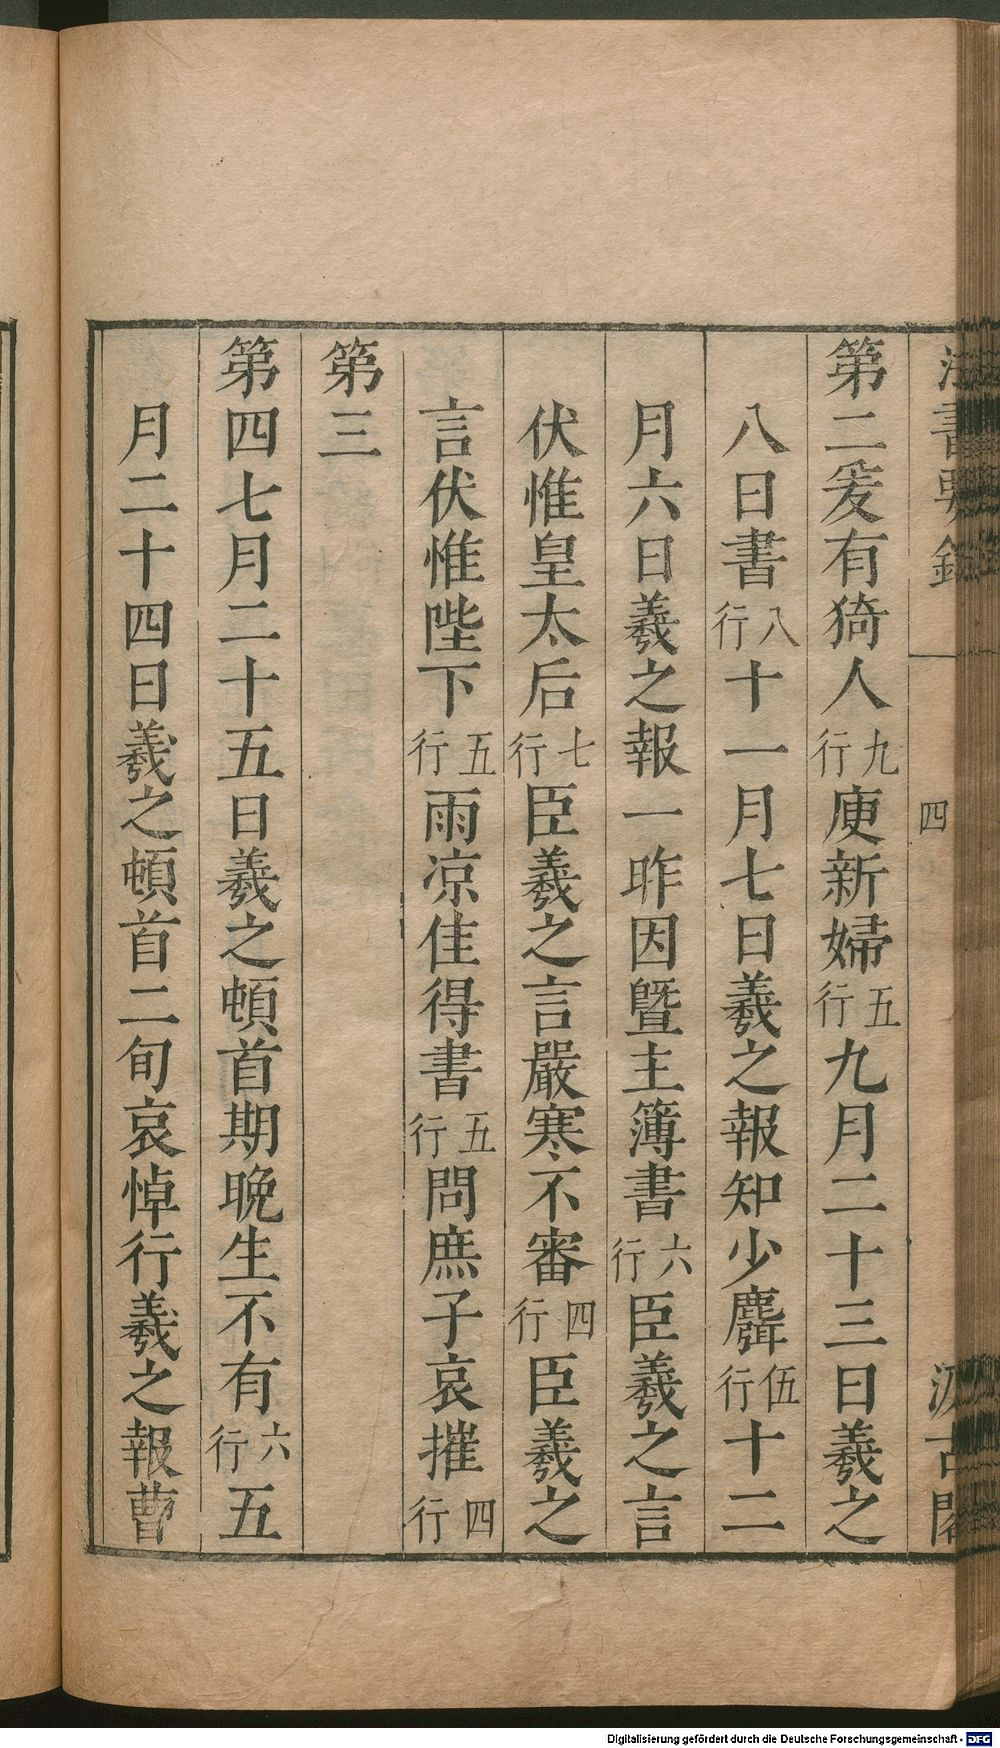 法書要錄
四
汲古閣
第二爰有猗人九行庾新婦五行九月二十三日羲之
八日書八行十一月七日羲之報知少麞伍行十二
月六日羲之報一昨因曁主簿書六行臣羲之言
伏惟皇太后七行臣羲之言嚴寒不審四行臣羲之
言伏惟陛下五行雨凉佳得書五行問庶子哀摧四行
第三
第四七月二十五日羲之頓首期晚生不有六行五
月二十四日羲之頓首二旬哀悼行羲之報曹
Digitalisierung gefördert durch die Deutsche Forschungsgemeinschaft - DFG